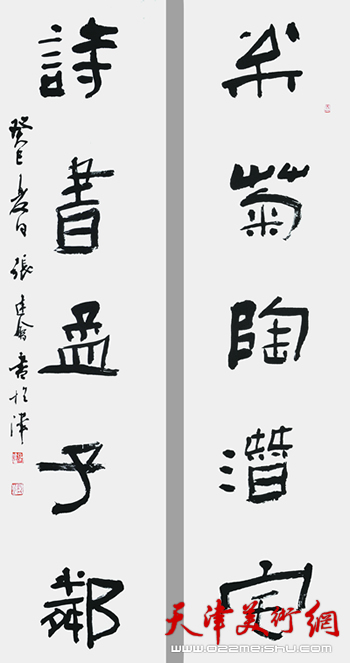 采菊陶潜宅
詩書孟子鄰
癸巳春日張建會書於津
天津美術網
www.022meishu.com